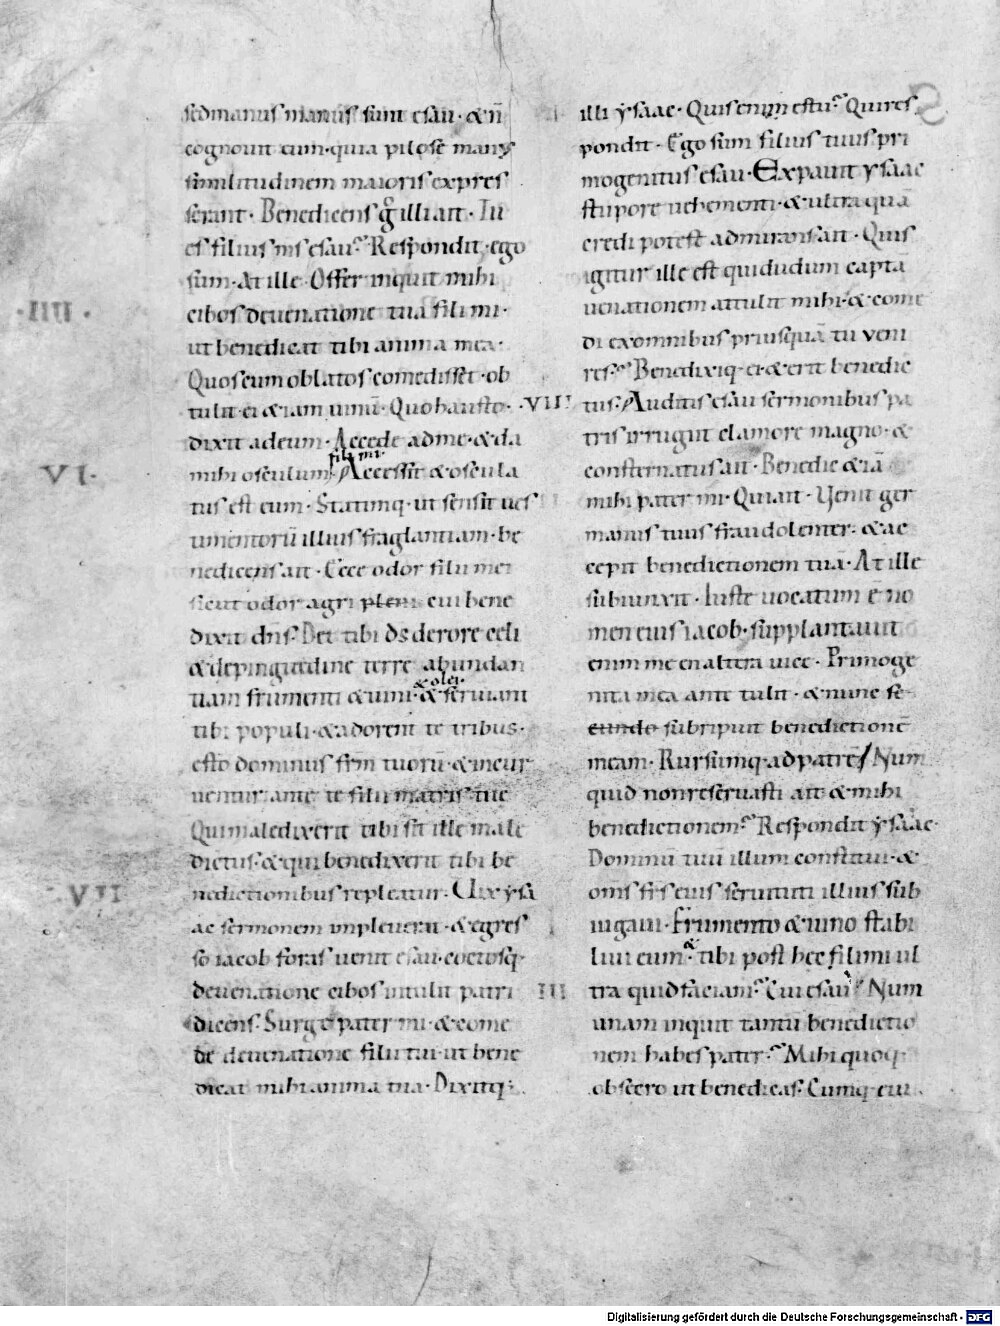 sed manus manus sunt esau · & n̄
cognouit eum · quia pilose manꝰ
similitudinem maioris expres
serant · Benedicens g̊ illi ait · Tu
es filius m̅s esau? Respondit · ego
sum · At ille · Offer inquit mihi
·IIII·
cibos de uenatione tua fili mi ·
ut benedicat tibi anima mea ·
Quos cum oblatos comedisset · ob
tulit ei & iam uinū · Quo hausto ·
dixit ad eum · Accede ad me · & da
fili mi ·
·VI·
mihi osculum / Accessit & oscula
tus est eum · Statimq · ut sensit ues
timentorū illius fraglantiam · be
nedicens ait · Ecce odor filii mei
sicut odor agri pleni cui bene
dixit dn̄s · Det tibi d̄s de rore celi
& de pinguedine terre abundan
& olei ·
tiam frumenti & uini · & seruiant
tibi populi · & adorent te tribus ·
esto dominus fr̄m tuorū · & incur
uentur ante te filii matris tue
Qui maledixerit tibi sit ille male
dictus · & qui benedixerit tibi be
·VII·
nedictionibus repleatur · Vix ysa
ac sermonem impleuerat · & egres
so iacob foras uenit esau · coctosq ·
de uenatione cibos intulit patri
dicens · Surge pater mi · & come
de de uenatione filii tui · ut bene
dicat mihi anima tua · Dixitq ·
illi ysaac · Quis enim es tu? Qui res
pondit · Ego sum filius tuus pri
mogenitus esau · Expauit ysaac
stupore uehementi · & ultra quā
credi potest admirans ait · Quis
igitur ille est qui dudum captā
uenationem attulit mihi · & come
di ex omnibus priusquā tu veni
res? Benedixiq · ei · & erit benedic
·VIII·
tus · / Auditis esau sermonibus pa
tris irrugiit clamore magno · &
consternatus ait · Benedic & iā
mihi pater mi · Qui ait · Venit ger
manus tuus fraudolenter · & ac
cepit benedictionem tuā · At ille
subiunxit · Iuste uocatum ē no
men eius iacob · supplantauit
enim me en altera uice · Primoge
nita mea ante tulit · & nunc se
cundo subripuit benedictionē
meam · Rursumq · ad patrē / Num
quid non reseruasti ait & mihi
benedictionem? Respondit ysaac ·
Dominū tuū illum constitui · &
om̄s fr̄s eius seruituti illius sub
iugaui · Frumento & uino stabi
&
liui eum · tibi post hec fili mi ul
III
tra quid faciam? Cui esau / Num
unam inquit tantū benedictio
nem habes pater? Mihi quoq ·
obsecro ut benedicas · Cumq · eiu
Digitalisierung gefördert durch die Deutsche Forschungsgemeinschaft - DFG